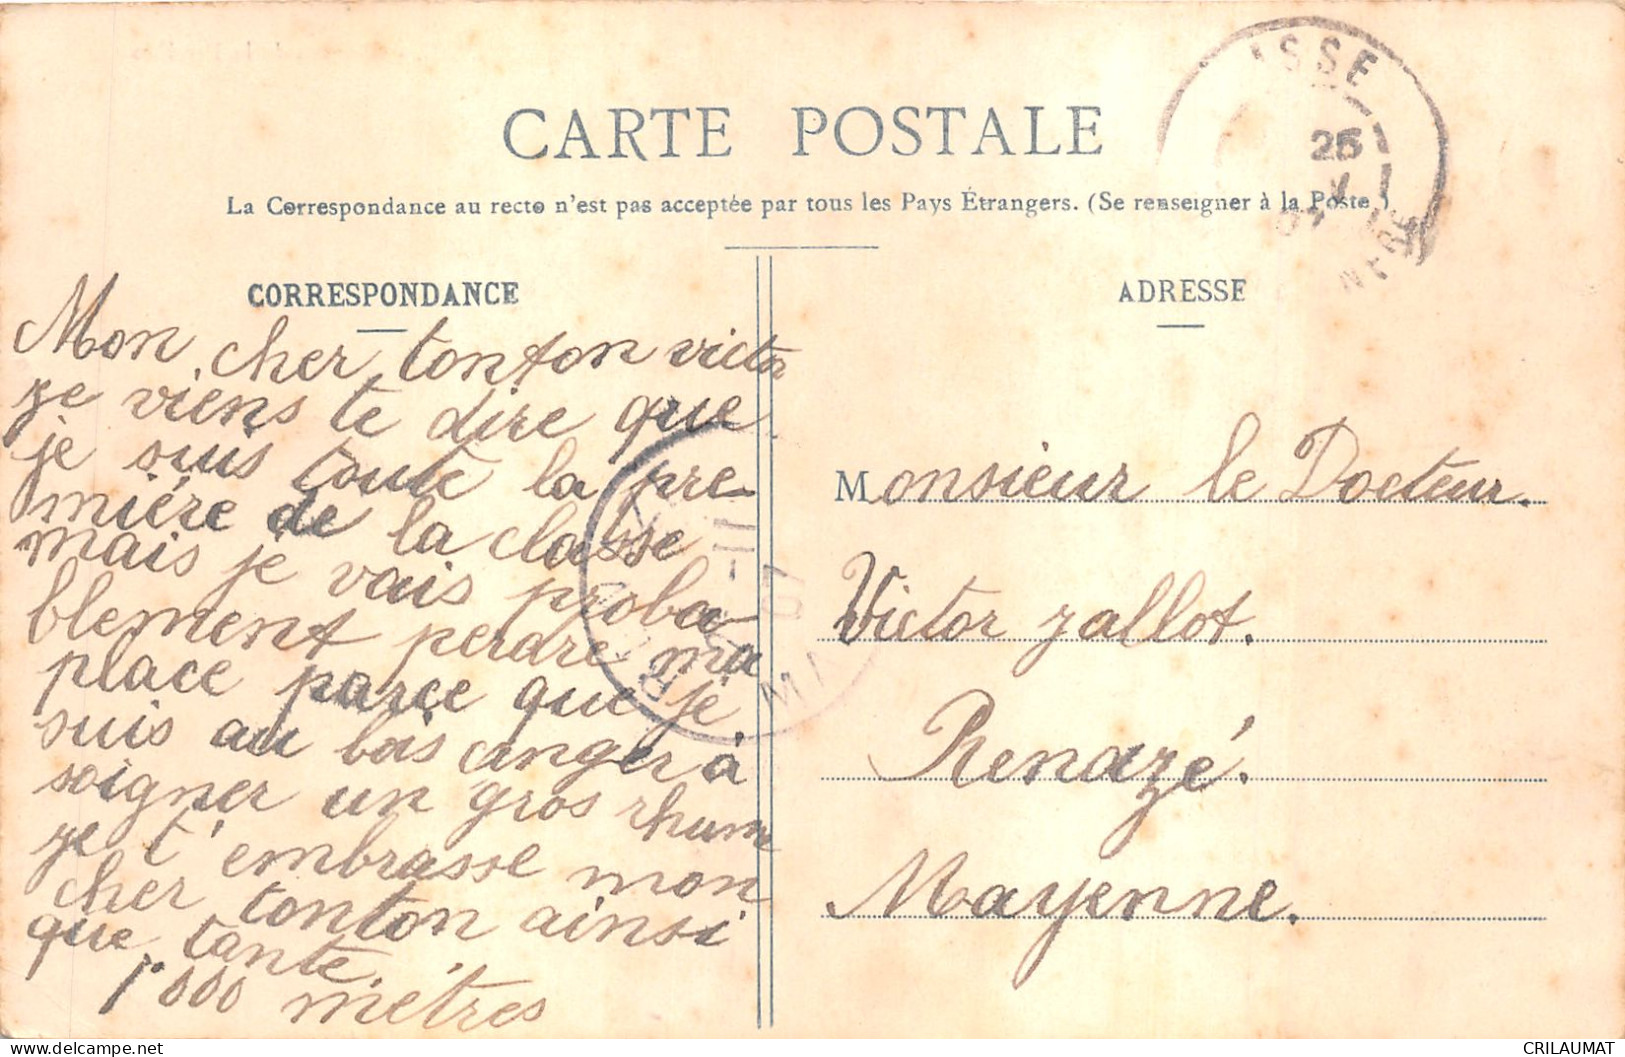 CARTE POSTALE
La Correspondance au recto n'est pas acceptée par tous les Pays Étrangers. (Se renseigner à la Poste.)
CORRESPONDANCE
Mon cher tonton victor
je viens te dire que
je suis toute la pre-
mière de la classe
mais je vais proba-
blement perdre ma
place parce que je
suis au bois anger à
soigner un gros rhume
je t'embrasse mon
cher tonton ainsi
que tante.
1.000 mètres
ADRESSE
Monsieur le Docteur.
Victor Jallot.
Renazé.
Mayenne.
ISSE
25
07
CRILAUMAT